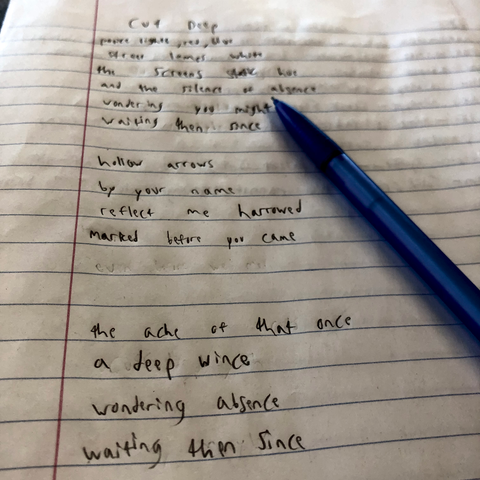 Cut Deep
police lights, red, blue
street lamps white
the screens hot
and the silence of absence
wondering you might
waiting then since
hollow arrows
by your name
reflect me harrowed
marked before you came
the ache of that once
a deep wince
wondering absence
waiting then since